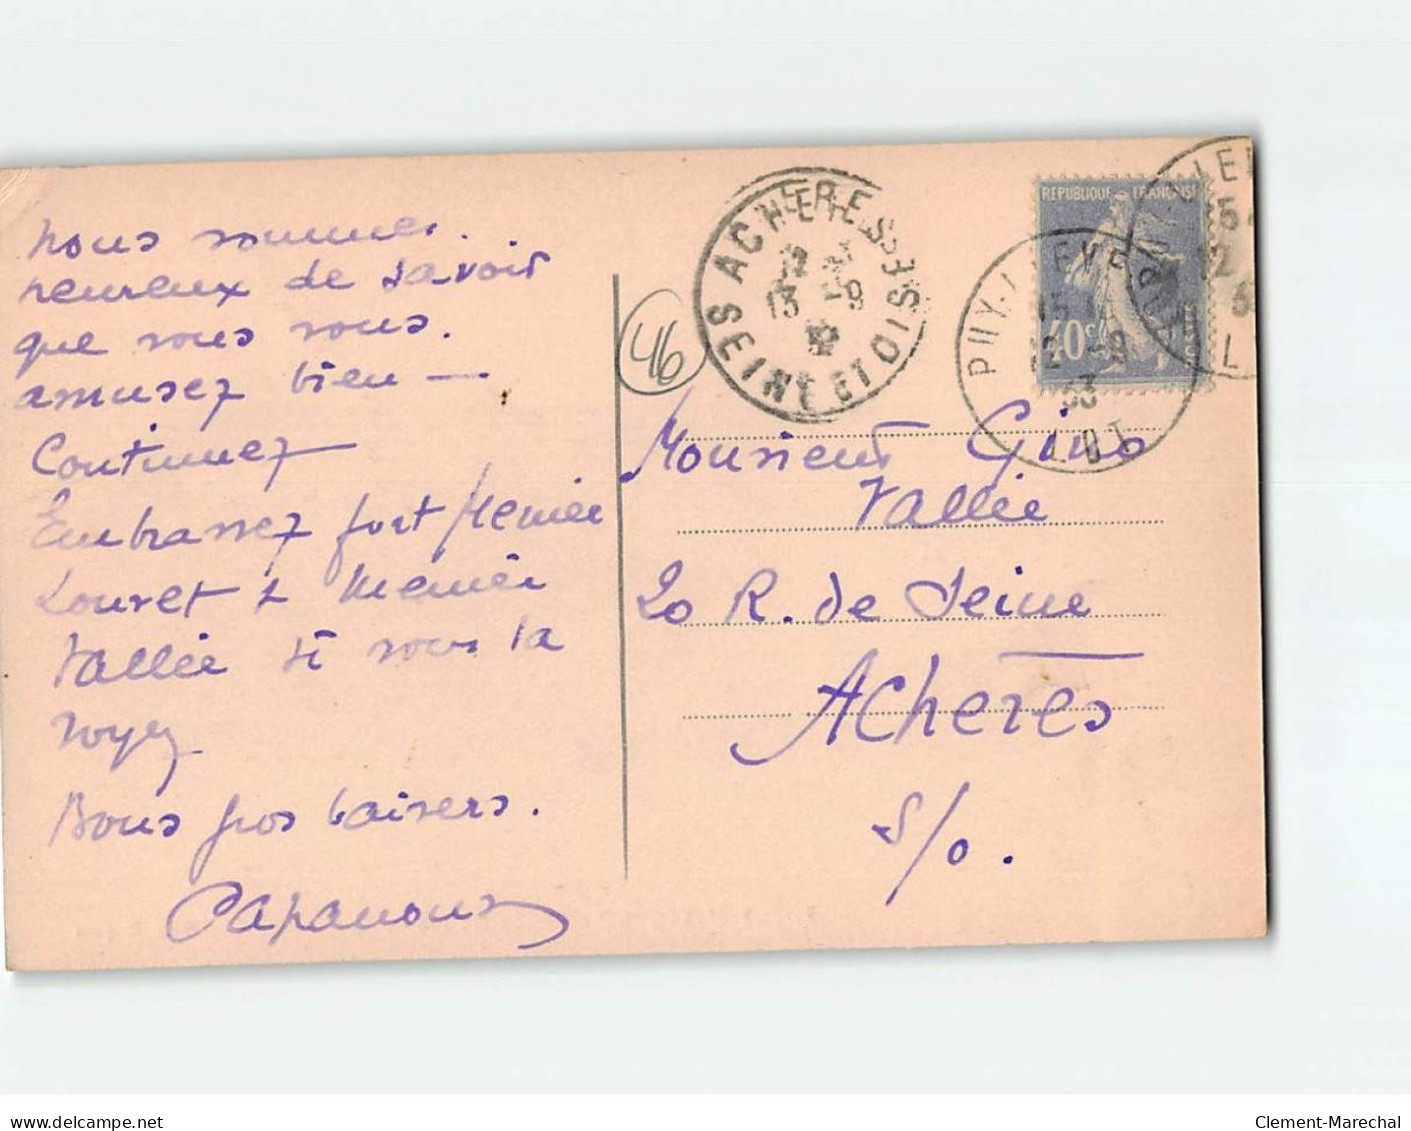 Nous sommes
heureux de savoir
que vous vous
amusez bien —
Continuez
Embrassez fort Mémée
Louret & Mémée
Vallée si vous la
voyez
Bons gros baisers.
Papanous
46
ACHERES
SEINE ET OISE
12
13 9
REPUBLIQUE FRANÇAISE
40c
PUY-L'EVEQUE
15
12 -9
33
LOT
Monsieur Gino
Vallée
20 R. de Seine
Achères
S/O.
delcampe.net
Clement-Marechal